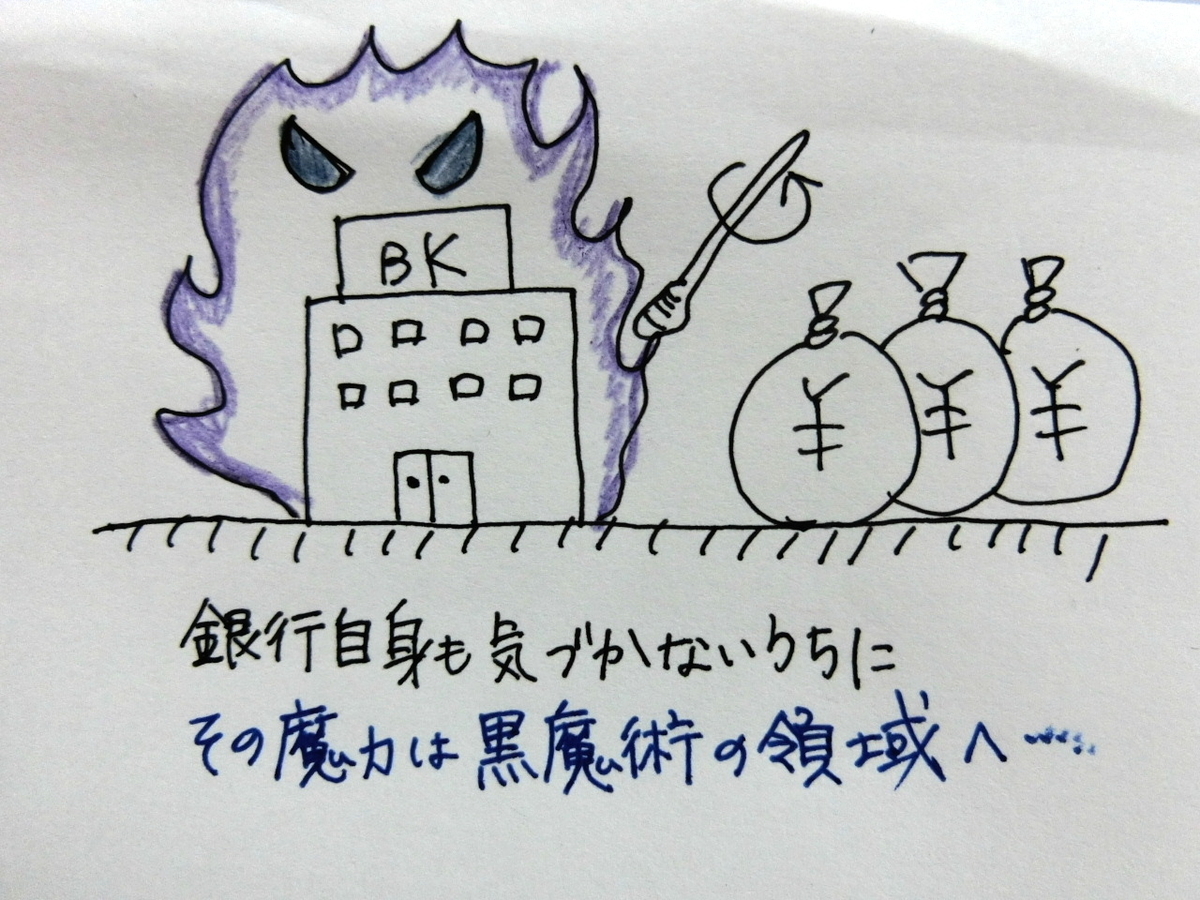 BK
¥ ¥ ¥
銀行自身も気づかないうちに
その魔力は黒魔術の領域へ……